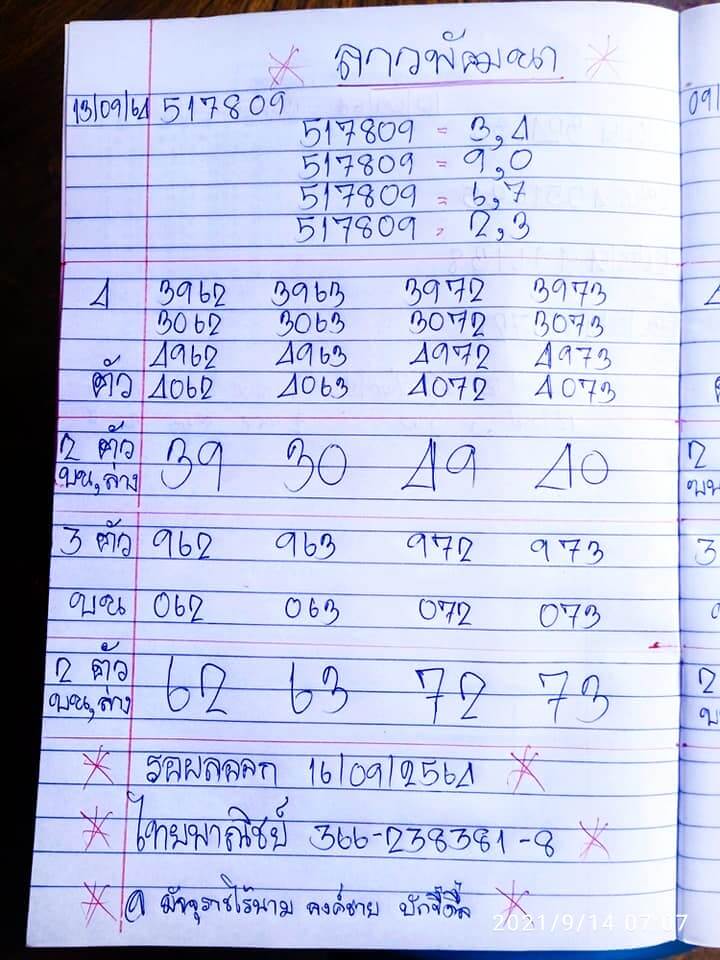 ลาวพัฒนา
13/09/64 517809
517809 = 3,4
517809 = 9,0
517809 = 6,7
517809 = 2,3
4 3962 3963 3972 3973
3062 3063 3072 3073
4962 4963 4972 4973
ตัว 4062 4063 4072 4073
2 ตัว
บน,ล่าง 39 30 49 40
3 ตัว 962 963 972 973
บน 062 063 072 073
2 ตัว
บน,ล่าง 62 63 72 73
รอผลออก 16/09/2564
ไทยพาณิชย์ 366-238381-8
@ มัจจุราชไร้นาม
2021/9/14 07:07
09/
2
บน
3
2